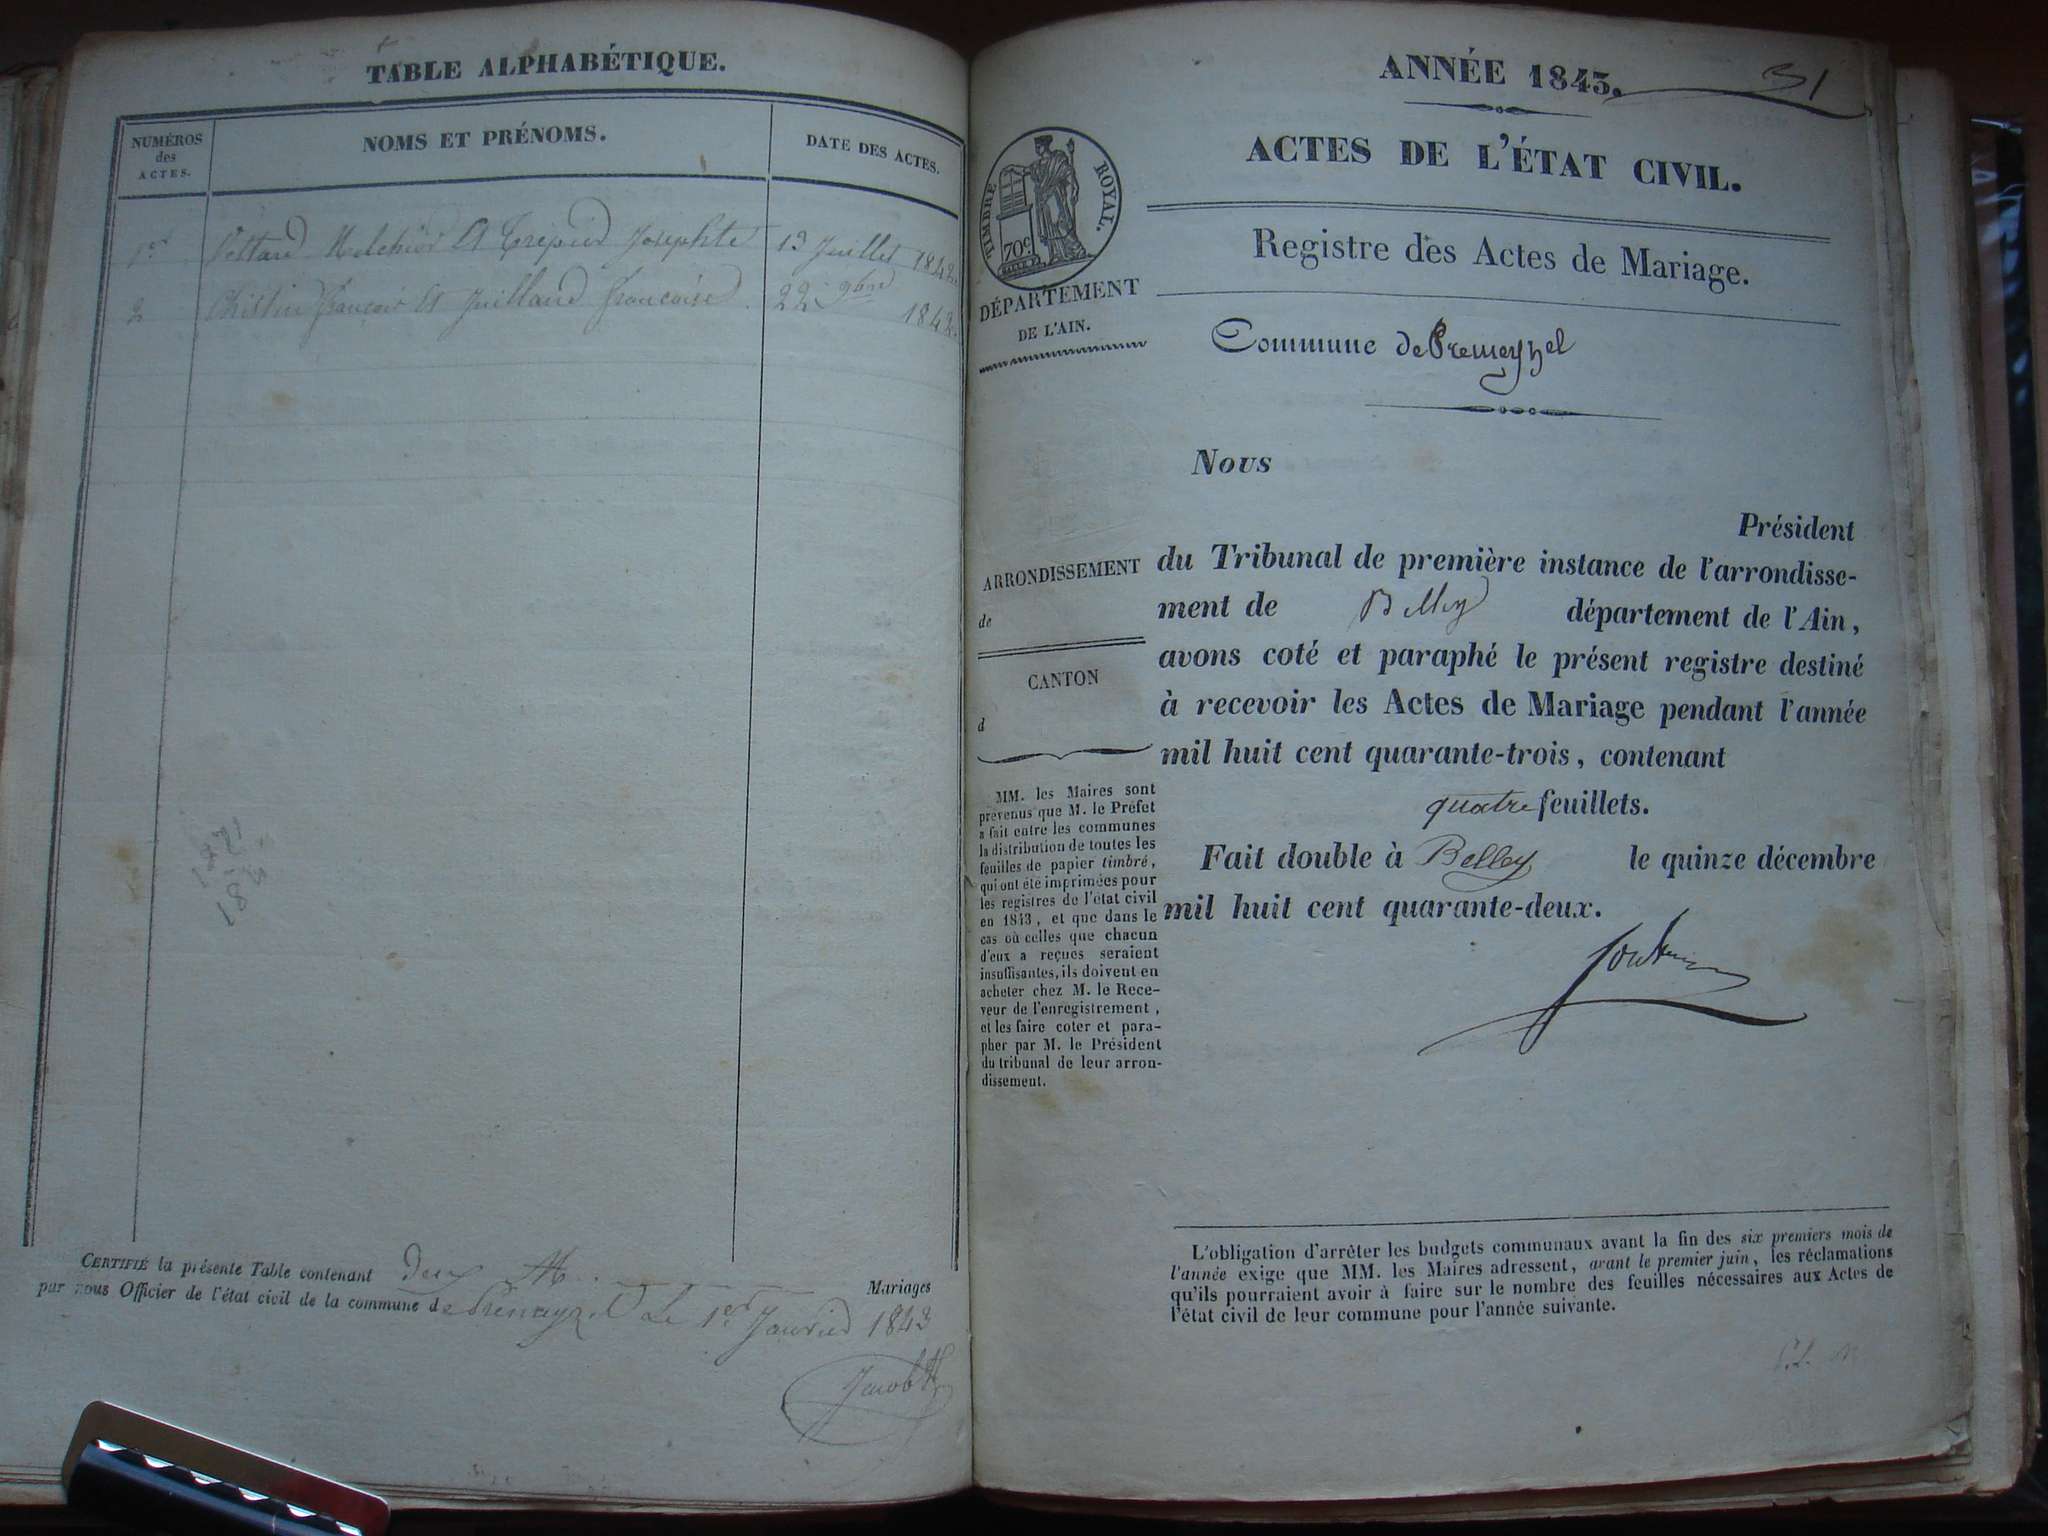 TABLE ALPHABÉTIQUE.
NUMÉROS
des
ACTES.
NOMS ET PRÉNOMS.
DATE DES ACTES.
1er Melchior Et Josephte 13 Juillet 1842
2 Christin François Et Juilland Françoise 22 9bre 1842.
CERTIFIÉ la présente Table contenant deux Mariages
par nous Officier de l'état civil de la commune de Prémeyzel Le 1er Janvier 1843
ANNÉE 1843.
31
TIMBRE ROYAL.
70c
DÉPARTEMENT
DE L'AIN.
ACTES DE L'ÉTAT CIVIL.
Registre des Actes de Mariage.
Commune de Premeyzel
Nous
Président
du Tribunal de première instance de l'arrondisse-
ment de Belley département de l'Ain,
avons coté et paraphé le présent registre destiné
à recevoir les Actes de Mariage pendant l'année
mil huit cent quarante-trois, contenant
quatre feuillets.
Fait double à Belley le quinze décembre
mil huit cent quarante-deux.
ARRONDISSEMENT
de
CANTON
d
MM. les Maires sont
prévenus que M. le Préfet
a fait entre les communes
la distribution de toutes les
feuilles de papier timbré,
qui ont été imprimées pour
les registres de l'état civil
en 1843, et que dans le
cas où celles que chacun
d'eux a reçues seraient
insuffisantes, ils doivent en
acheter chez M. le Rece-
veur de l'enregistrement,
et les faire coter et para-
pher par M. le Président
du tribunal de leur arron-
dissement.
L'obligation d'arrêter les budgets communaux avant la fin des six premiers mois de
l'année exige que MM. les Maires adressent, avant le premier juin, les réclamations
qu'ils pourraient avoir à faire sur le nombre des feuilles nécessaires aux Actes de
l'état civil de leur commune pour l'année suivante.